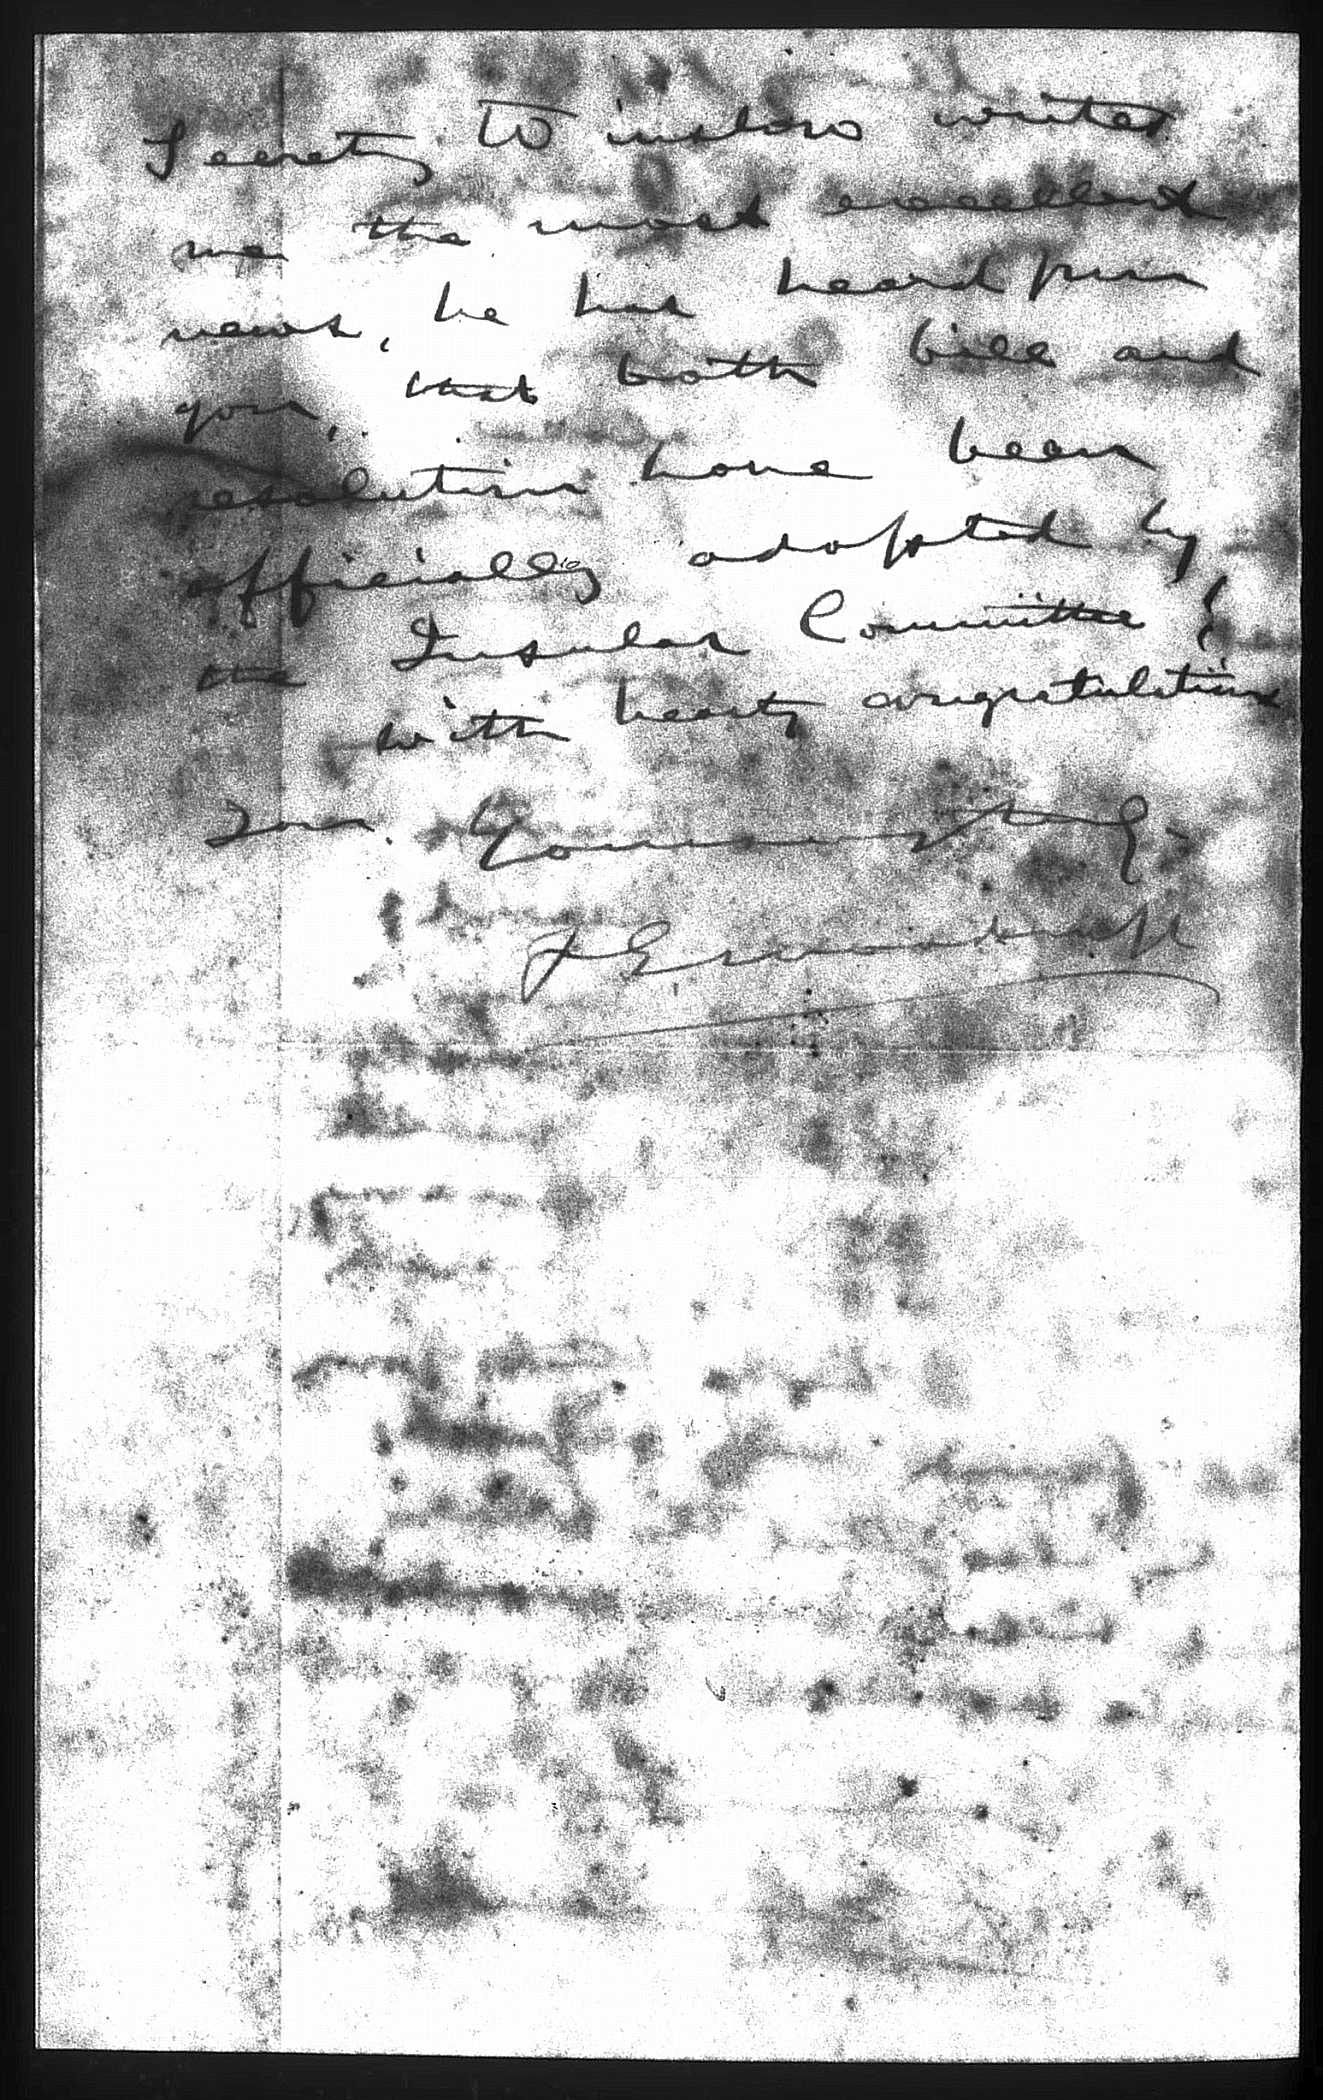 Secrety Winslow writes
me the most excellent
news, he has heard from
you, that both bill and
resolution have been
officially adopted by
the Insular Committee !
with hearty congratulations